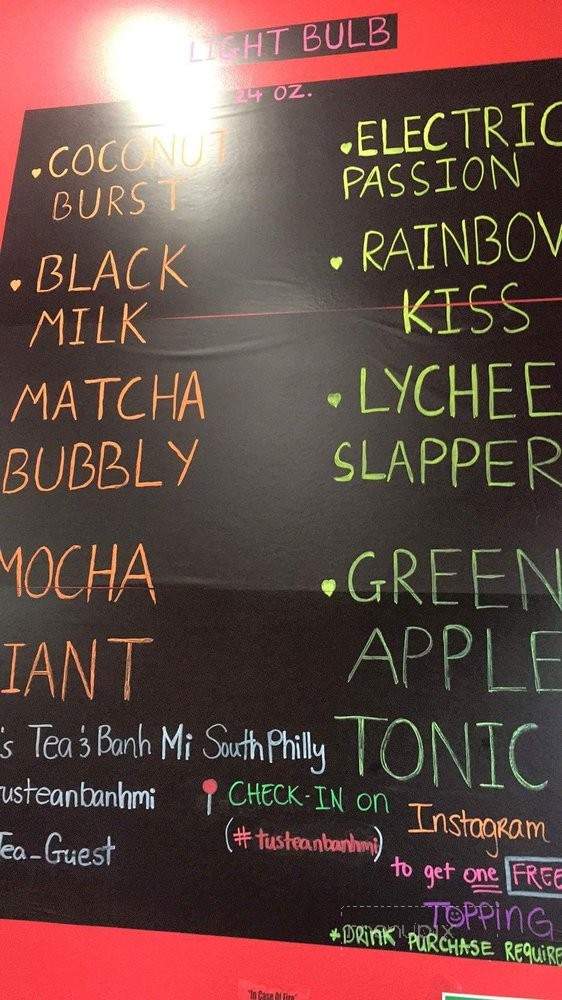 LIGHT BULB
24 OZ.
COCONUT
BURST
BLACK
MILK
MATCHA
BUBBLY
MOCHA
IANT
ELECTRIC
PASSION
RAINBOW
KISS
LYCHEE
SLAPPER
GREEN
APPLE
TONIC
's Tea & Banh Mi South Philly
tusteanbanhmi
Tea-Guest
CHECK-IN on
(#tusteanbanhmi)
Instagram
to get one FREE
TOPPING
*DRINK PURCHASE REQUIRE
menupix
"In Case Of Fire"